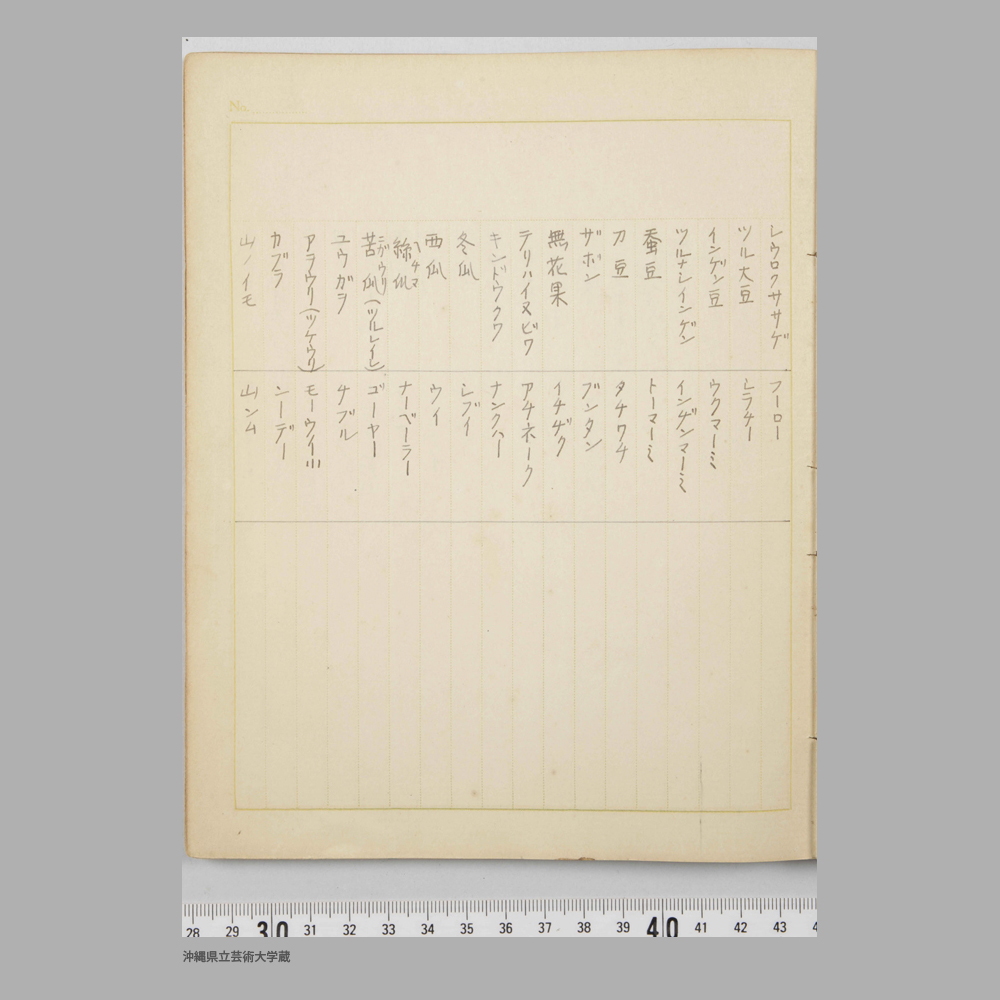 No.
レウロクササゲ フーロー
ツル大豆 シラナー
インゲン豆 ウクマーミ
ツルナシインゲン インゲンマーミ
蚕豆 トーマーミ
刀豆 タチワチ
ザボン ブンタン
無花果 イチヂク
テリハイヌビワ アチネーク
キンドウクワ ナンクハー
冬瓜 シブイ
西瓜 ウイ
絲瓜 ヘチマ ナーベーラー
苦瓜 ニガウリ (ツルレイシ) ゴーヤー
ユウガヲ チブル
アラウリ(ツケウリ) モーウイ小
カブラ ンーデー
山ノイモ 山ンム
28 29 30 31 32 33 34 35 36 37 38 39 40 41 42 43 4
沖縄県立芸術大学蔵